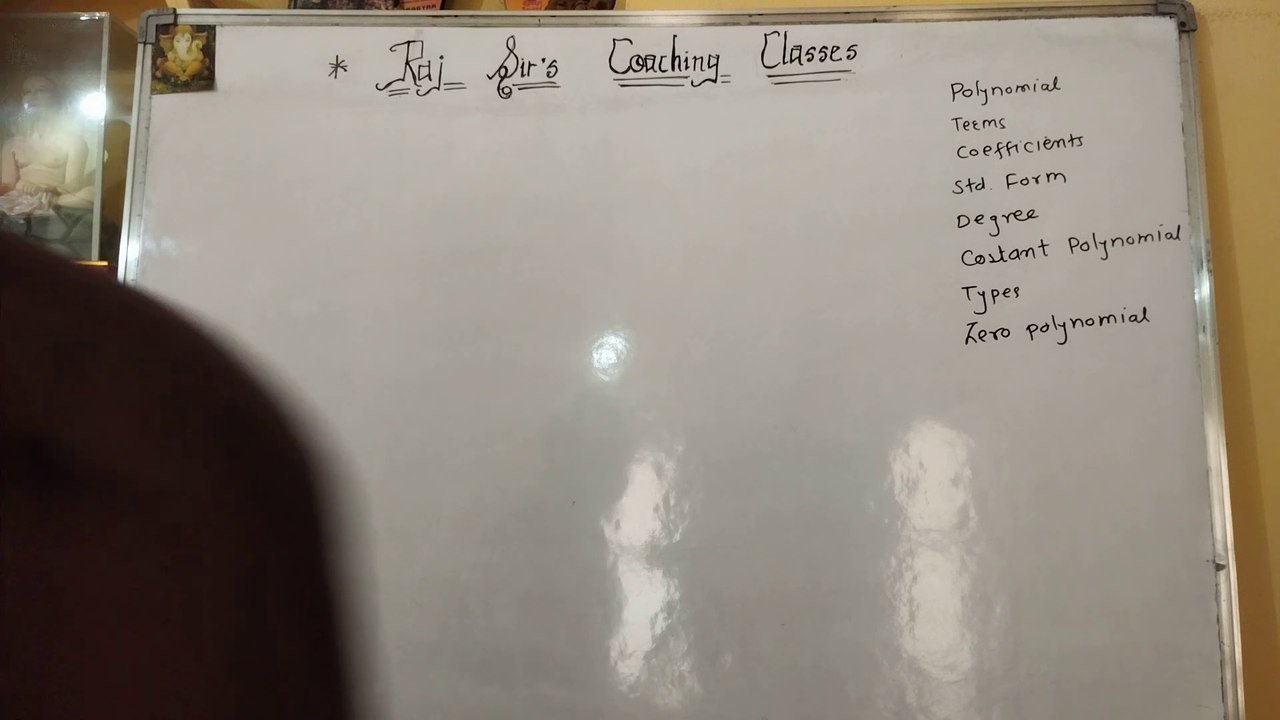 * Raj Sir's Coaching Classes
Polynomial
Terms
Coefficients
Std. Form
Degree
Costant Polynomial
Types
Zero polynomial